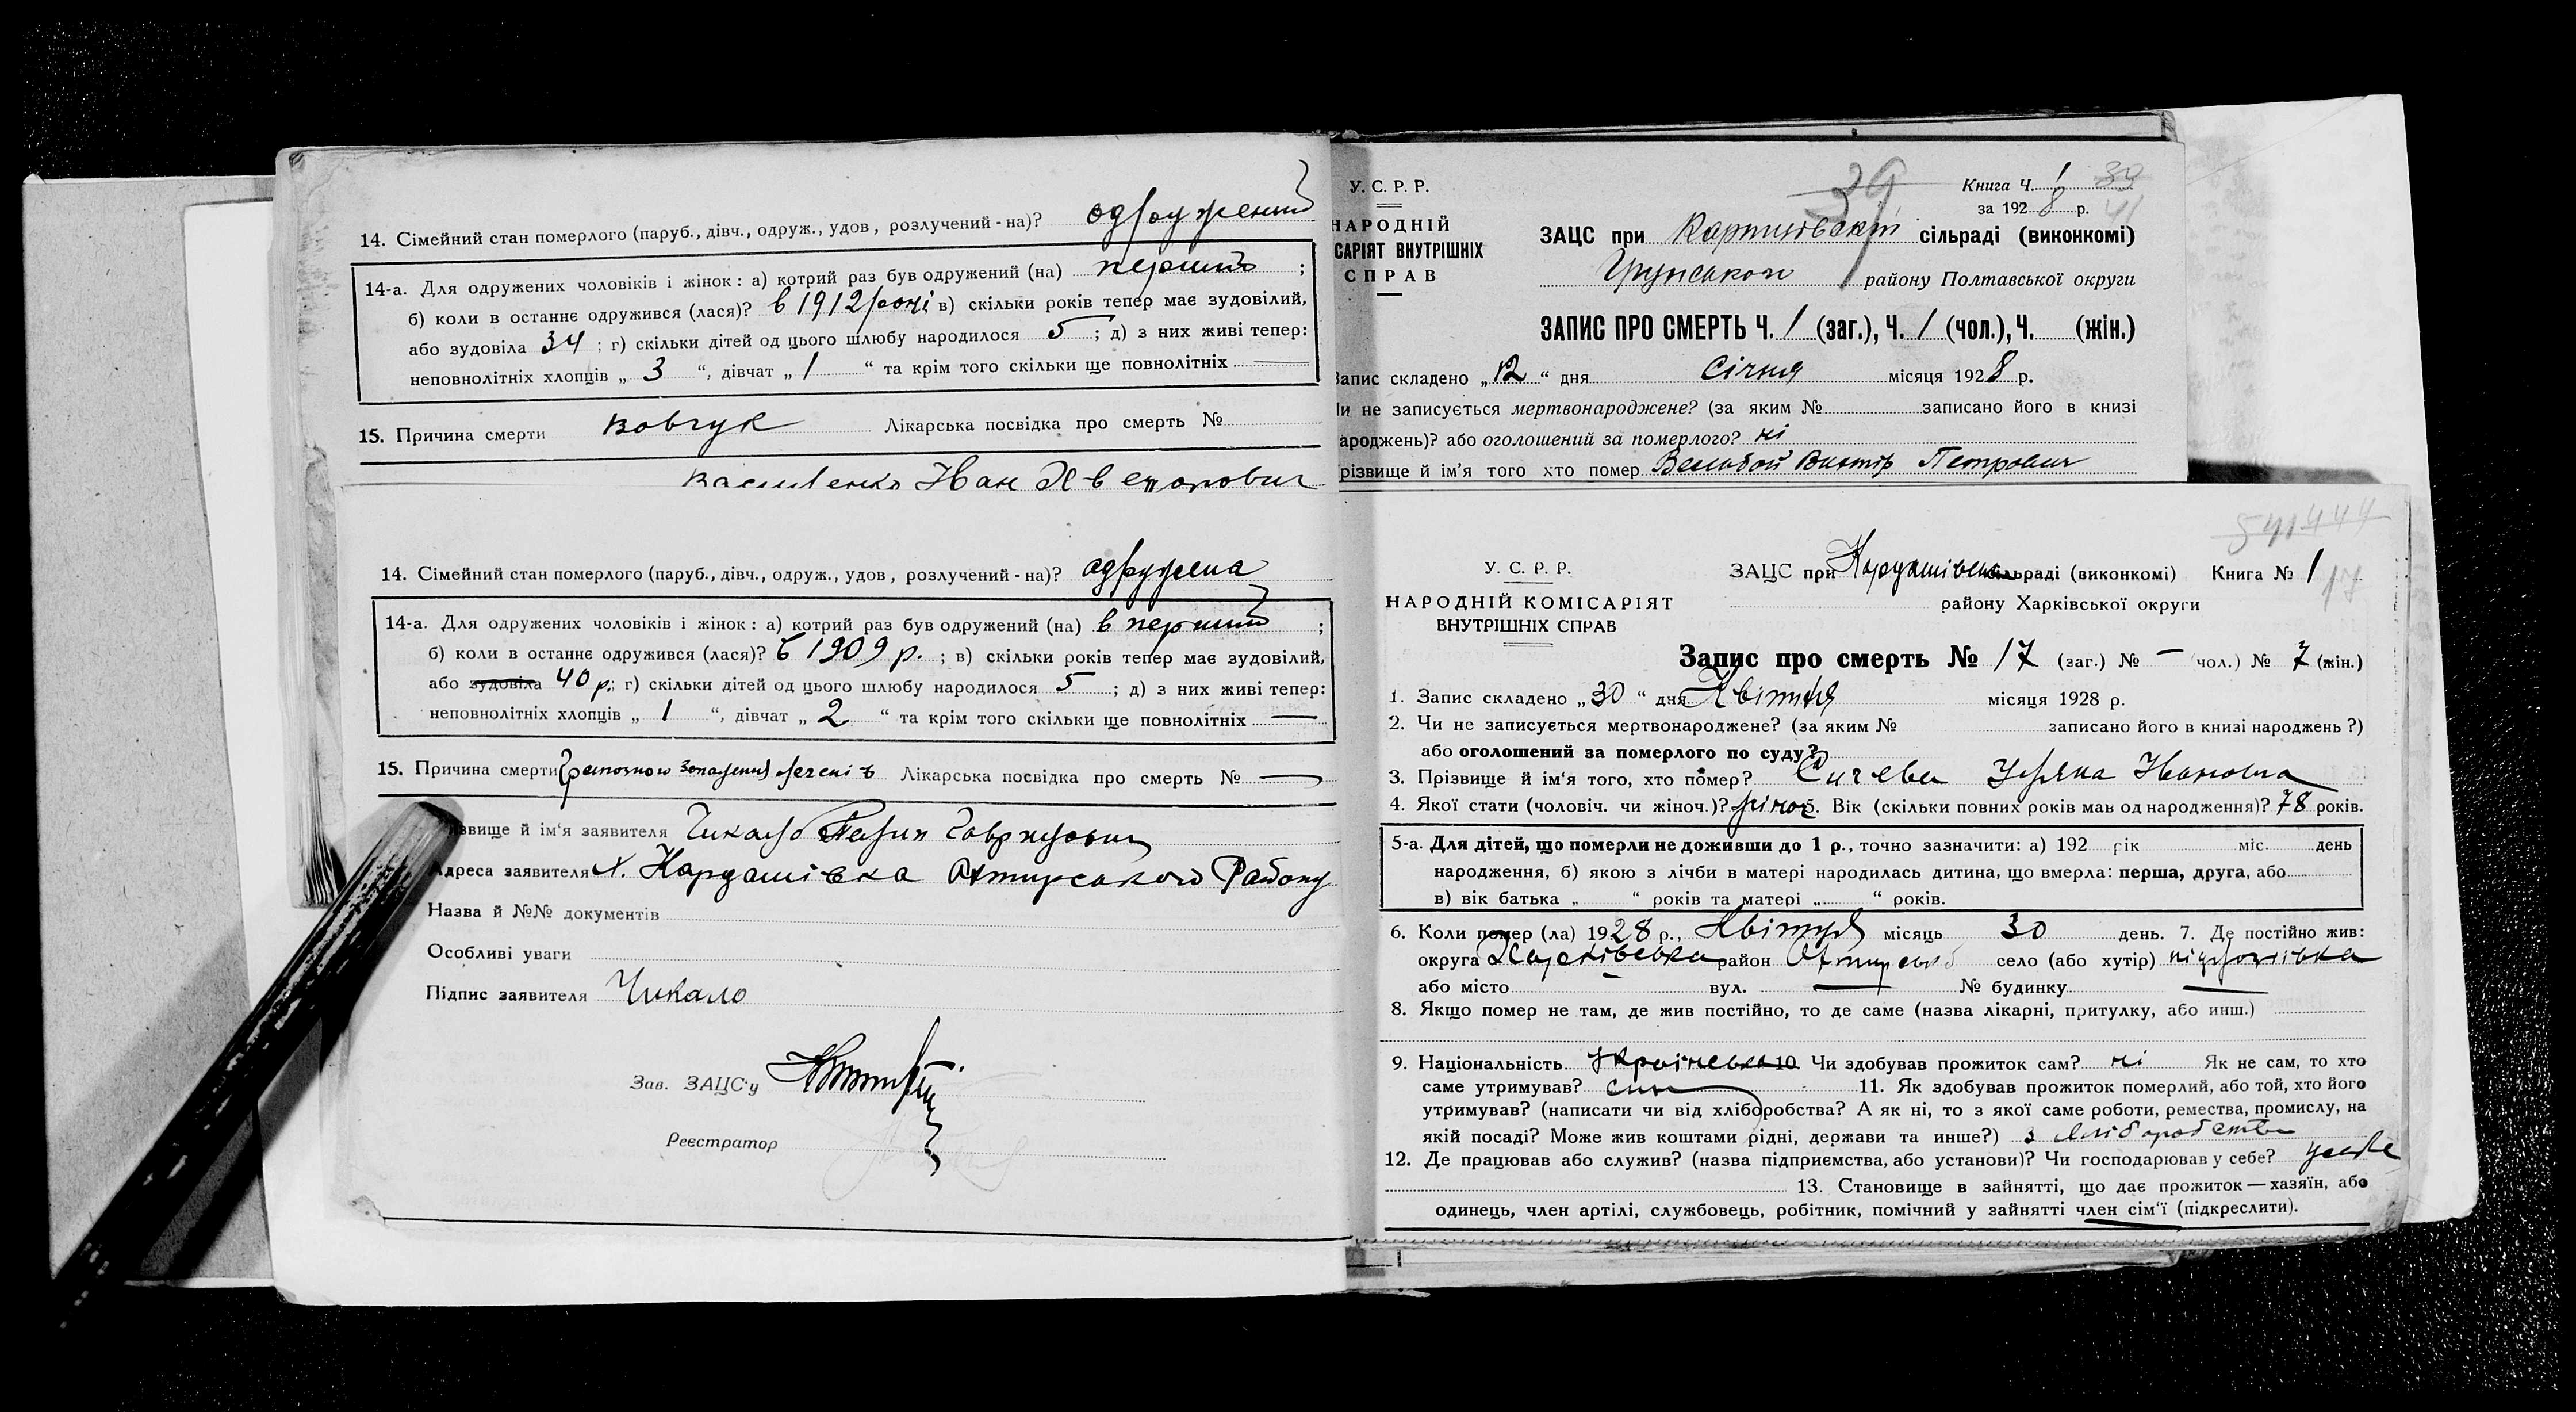 14. Сімейний стан померлого (паруб., дівч., одруж., удов, розлучений-на)? одружений
14-а. Для одружених чоловіків і жінок: а) котрий раз був одружений (на) перший ;
б) коли в останнє одружився (лася)? в 1912 році в) скільки років тепер має зудовілий,
або зудовіла 34 ; г) скільки дітей од цього шлюбу народилося 5 ; д) з них живі тепер:
неповнолітніх хлопців „ 3 “, дівчат „ 1 “ та крім того скільки ще повнолітніх —
15. Причина смерти вовчук Лікарська посвідка про смерть №
Василенко Иван
14. Сімейний стан померлого (паруб., дівч., одруж., удов, розлучений-на)? одружена
14-а. Для одружених чоловіків і жінок: а) котрий раз був одружений (на) в перший ;
б) коли в останнє одружився (лася)? в 1909 р. ; в) скільки років тепер має зудовілий,
або зудовіла 40 р.; г) скільки дітей од цього шлюбу народилося 5 ; д) з них живі тепер:
неповнолітніх хлопців „ 1 “, дівчат „ 2 “ та крім того скільки ще повнолітніх —
15. Причина смерти Лікарська посвідка про смерть № —
звище й ім'я заявителя Чикало
Адреса заявителя х. Кардашівка Охтирського Району
Назва й №№ документів
Особливі уваги
Підпис заявителя Чикало
Зав. ЗАЦС'у
Реєстратор
У.С.Р.Р.
39
Книга Ч. 1 39
за 1928 р. 41
НАРОДНІЙ
САРІЯТ ВНУТРІШНІХ
СПРАВ
ЗАЦС при сільраді (виконкомі)
Грунського району Полтавської округи
ЗАПИС ПРО СМЕРТЬ Ч. 1 (заг.), Ч. 1 (чол.), Ч. (жін.)
Запис складено „12“ дня Січня місяця 1928 р.
Чи не записується мертвонароджене? (за яким № записано його в книзі
ароджень)? або оголошений за померлого? ні
різвище й ім'я того хто помер Віктір Петрович
У.С.Р.Р.
НАРОДНІЙ КОМІСАРІЯТ
ВНУТРІШНІХ СПРАВ
ЗАЦС при Кардашівській сільраді (виконкомі) Книга № 1
17
району Харківської округи
Запис про смерть № 17 (заг.) № — чол.) № 7 (жін.)
1. Запис складено „30“ дня Квітня місяця 1928 р.
2. Чи не записується мертвонароджене? (за яким № записано його в книзі народжень?)
або оголошений за померлого по суду?
3. Прізвище й ім'я того, хто помер? Сичева Уляна Ивановна
4. Якої стати (чоловіч. чи жіноч.)? жіноч 5. Вік (скільки повних років мав од народження)? 78 років.
5-а. Для дітей, що померли не доживши до 1 р., точно зазначити: а) 192 рік міс. день
народження, б) якою з лічби в матері народилась дитина, що вмерла: перша, друга, або
в) вік батька „ “ років та матері „ “ років.
6. Коли помер (ла) 1928 р., Квітня місяць 30 день. 7. Де постійно жив:
округа Харківська район Охтирськ село (або хутір)
або місто — вул. — № будинку —
8. Якщо помер не там, де жив постійно, то де саме (назва лікарні, притулку, або инш.)
9. Національність українська 10. Чи здобував прожиток сам? ні Як не сам, то хто
саме утримував? син 11. Як здобував прожиток померлий, або той, хто його
утримував? (написати чи від хліборобства? А як ні, то з якої саме роботи, ремества, промислу, на
якій посаді? Може жив коштами рідні, держави та инше?) з хліборобства
12. Де працював або служив? (назва підприємства, або установи)? Чи господарював у себе? у себе
13. Становище в зайнятті, що дає прожиток — хазяїн, або
одинець, член артілі, службовець, робітник, помічний у зайнятті член сім'ї (підкреслити).